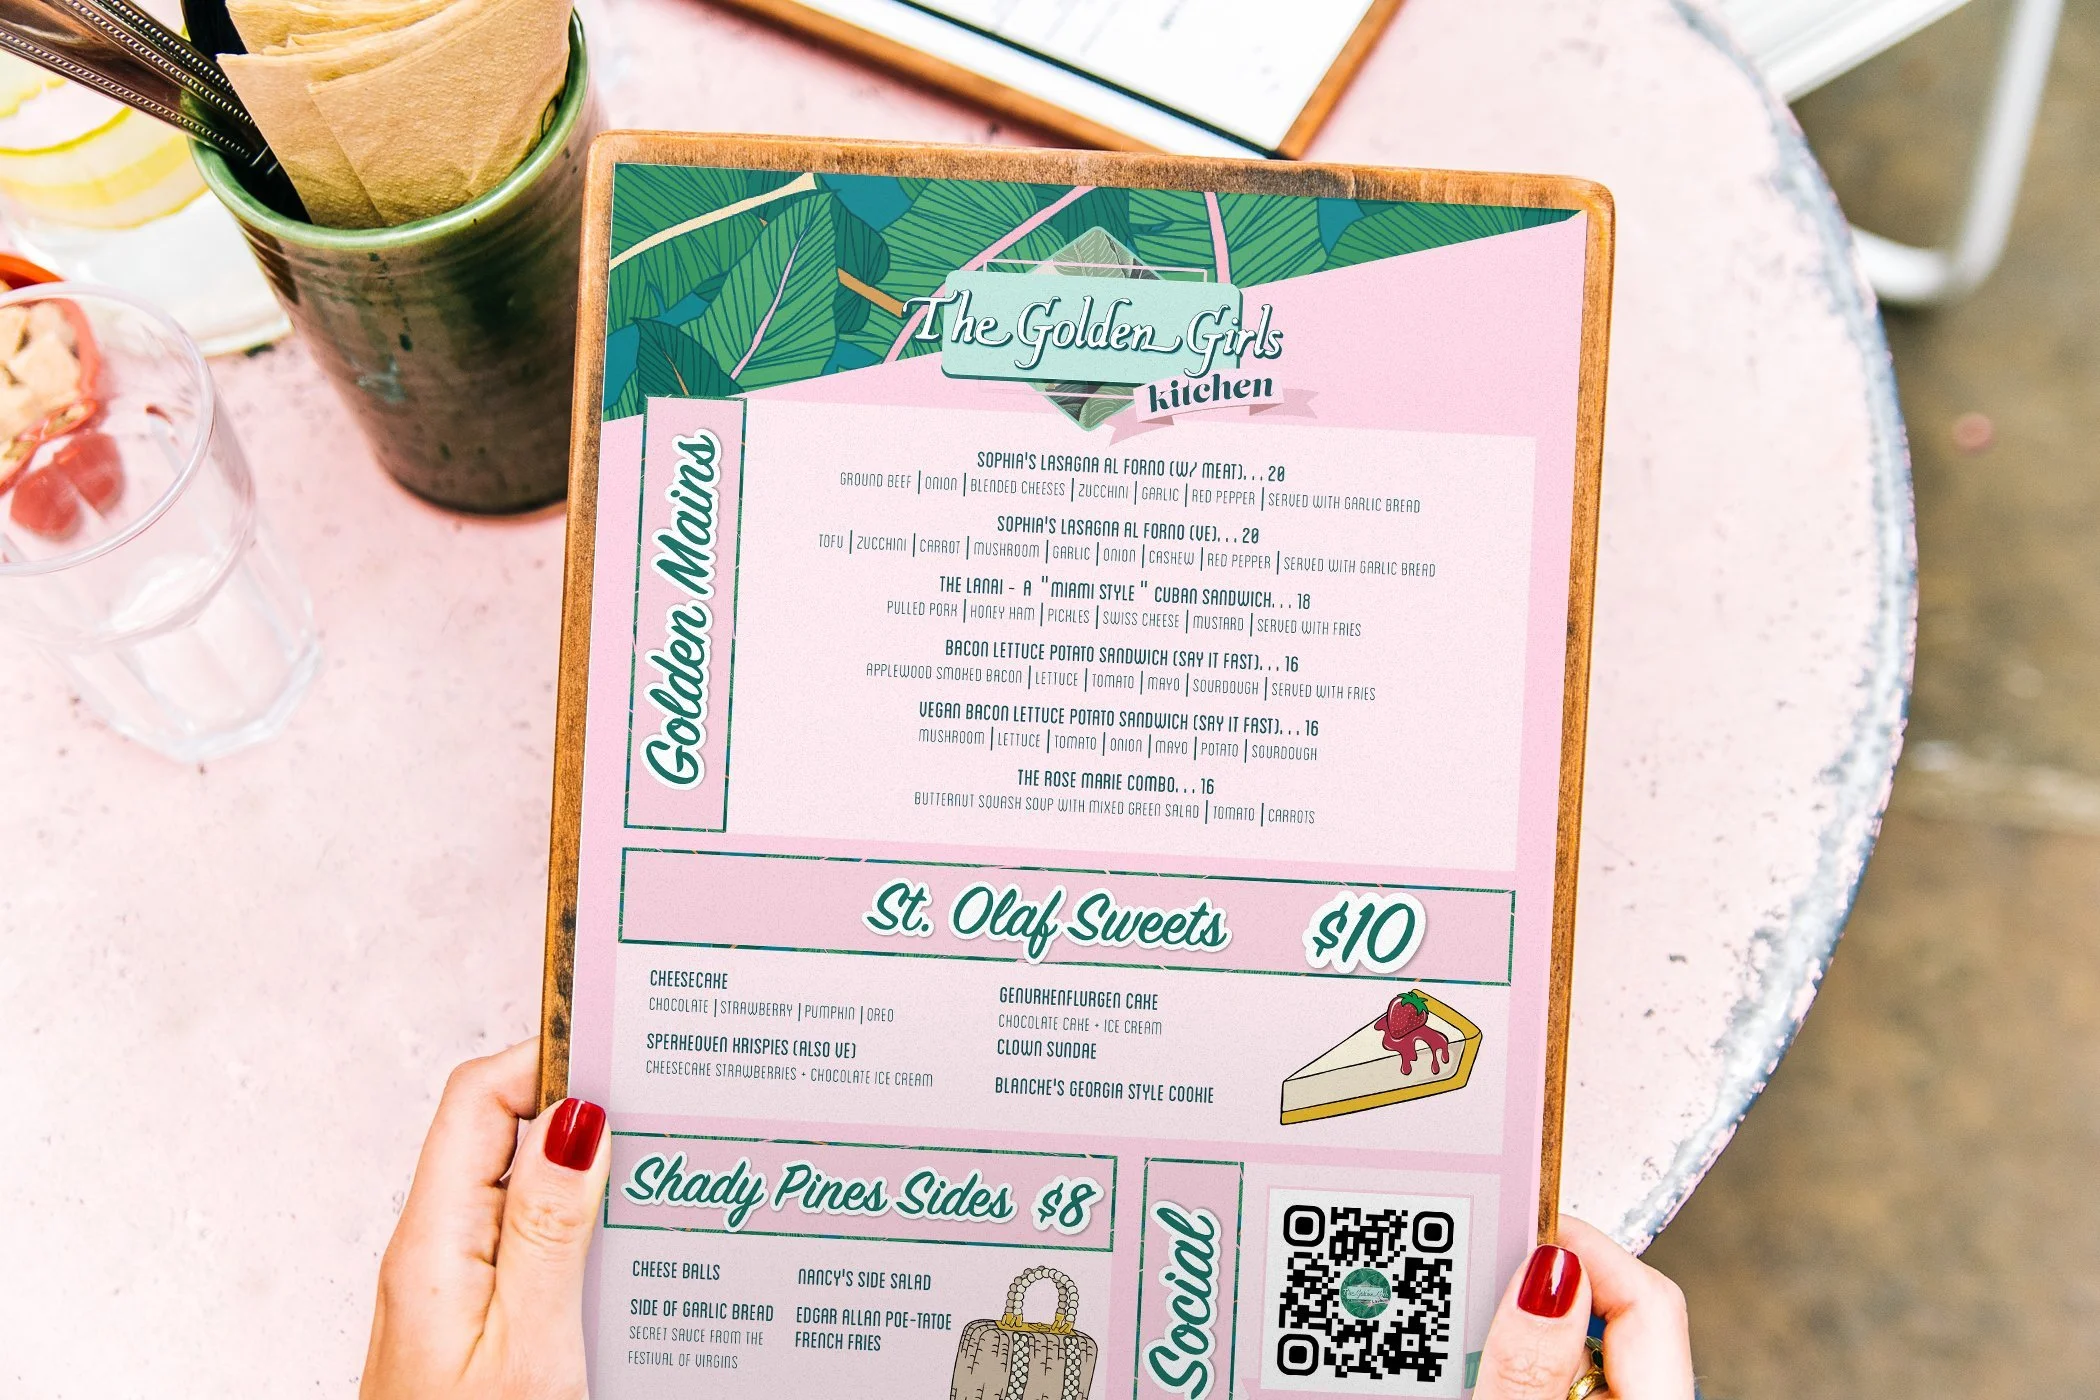 The Golden Girls
kitchen
Golden Mains
SOPHIA'S LASAGNA AL FORNO (W/ MEAT)... 20
GROUND BEEF | ONION | BLENDED CHEESES | ZUCCHINI | GARLIC | RED PEPPER | SERVED WITH GARLIC BREAD
SOPHIA'S LASAGNA AL FORNO (VE)... 20
TOFU | ZUCCHINI | CARROT | MUSHROOM | GARLIC | ONION | CASHEW | RED PEPPER | SERVED WITH GARLIC BREAD
THE LANAI - A "MIAMI STYLE" CUBAN SANDWICH... 18
PULLED PORK | HONEY HAM | PICKLES | SWISS CHEESE | MUSTARD | SERVED WITH FRIES
BACON LETTUCE POTATO SANDWICH (SAY IT FAST)... 16
APPLEWOOD SMOKED BACON | LETTUCE | TOMATO | MAYO | SOURDOUGH | SERVED WITH FRIES
VEGAN BACON LETTUCE POTATO SANDWICH (SAY IT FAST)... 16
MUSHROOM | LETTUCE | TOMATO | ONION | MAYO | POTATO | SOURDOUGH
THE ROSE MARIE COMBO... 16
BUTTERNUT SQUASH SOUP WITH MIXED GREEN SALAD | TOMATO | CARROTS
St. Olaf Sweets $10
CHEESECAKE
CHOCOLATE | STRAWBERRY | PUMPKIN | OREO
SPERHEOVEN KRISPIES (ALSO VE)
CHEESECAKE STRAWBERRIES + CHOCOLATE ICE CREAM
GENURKENFLURGEN CAKE
CHOCOLATE CAKE + ICE CREAM
CLOWN SUNDAE
BLANCHE'S GEORGIA STYLE COOKIE
Shady Pines Sides $8
CHEESE BALLS
SIDE OF GARLIC BREAD
SECRET SAUCE FROM THE
FESTIVAL OF VIRGINS
NANCY'S SIDE SALAD
EDGAR ALLAN POE-TATOE
FRENCH FRIES
Social